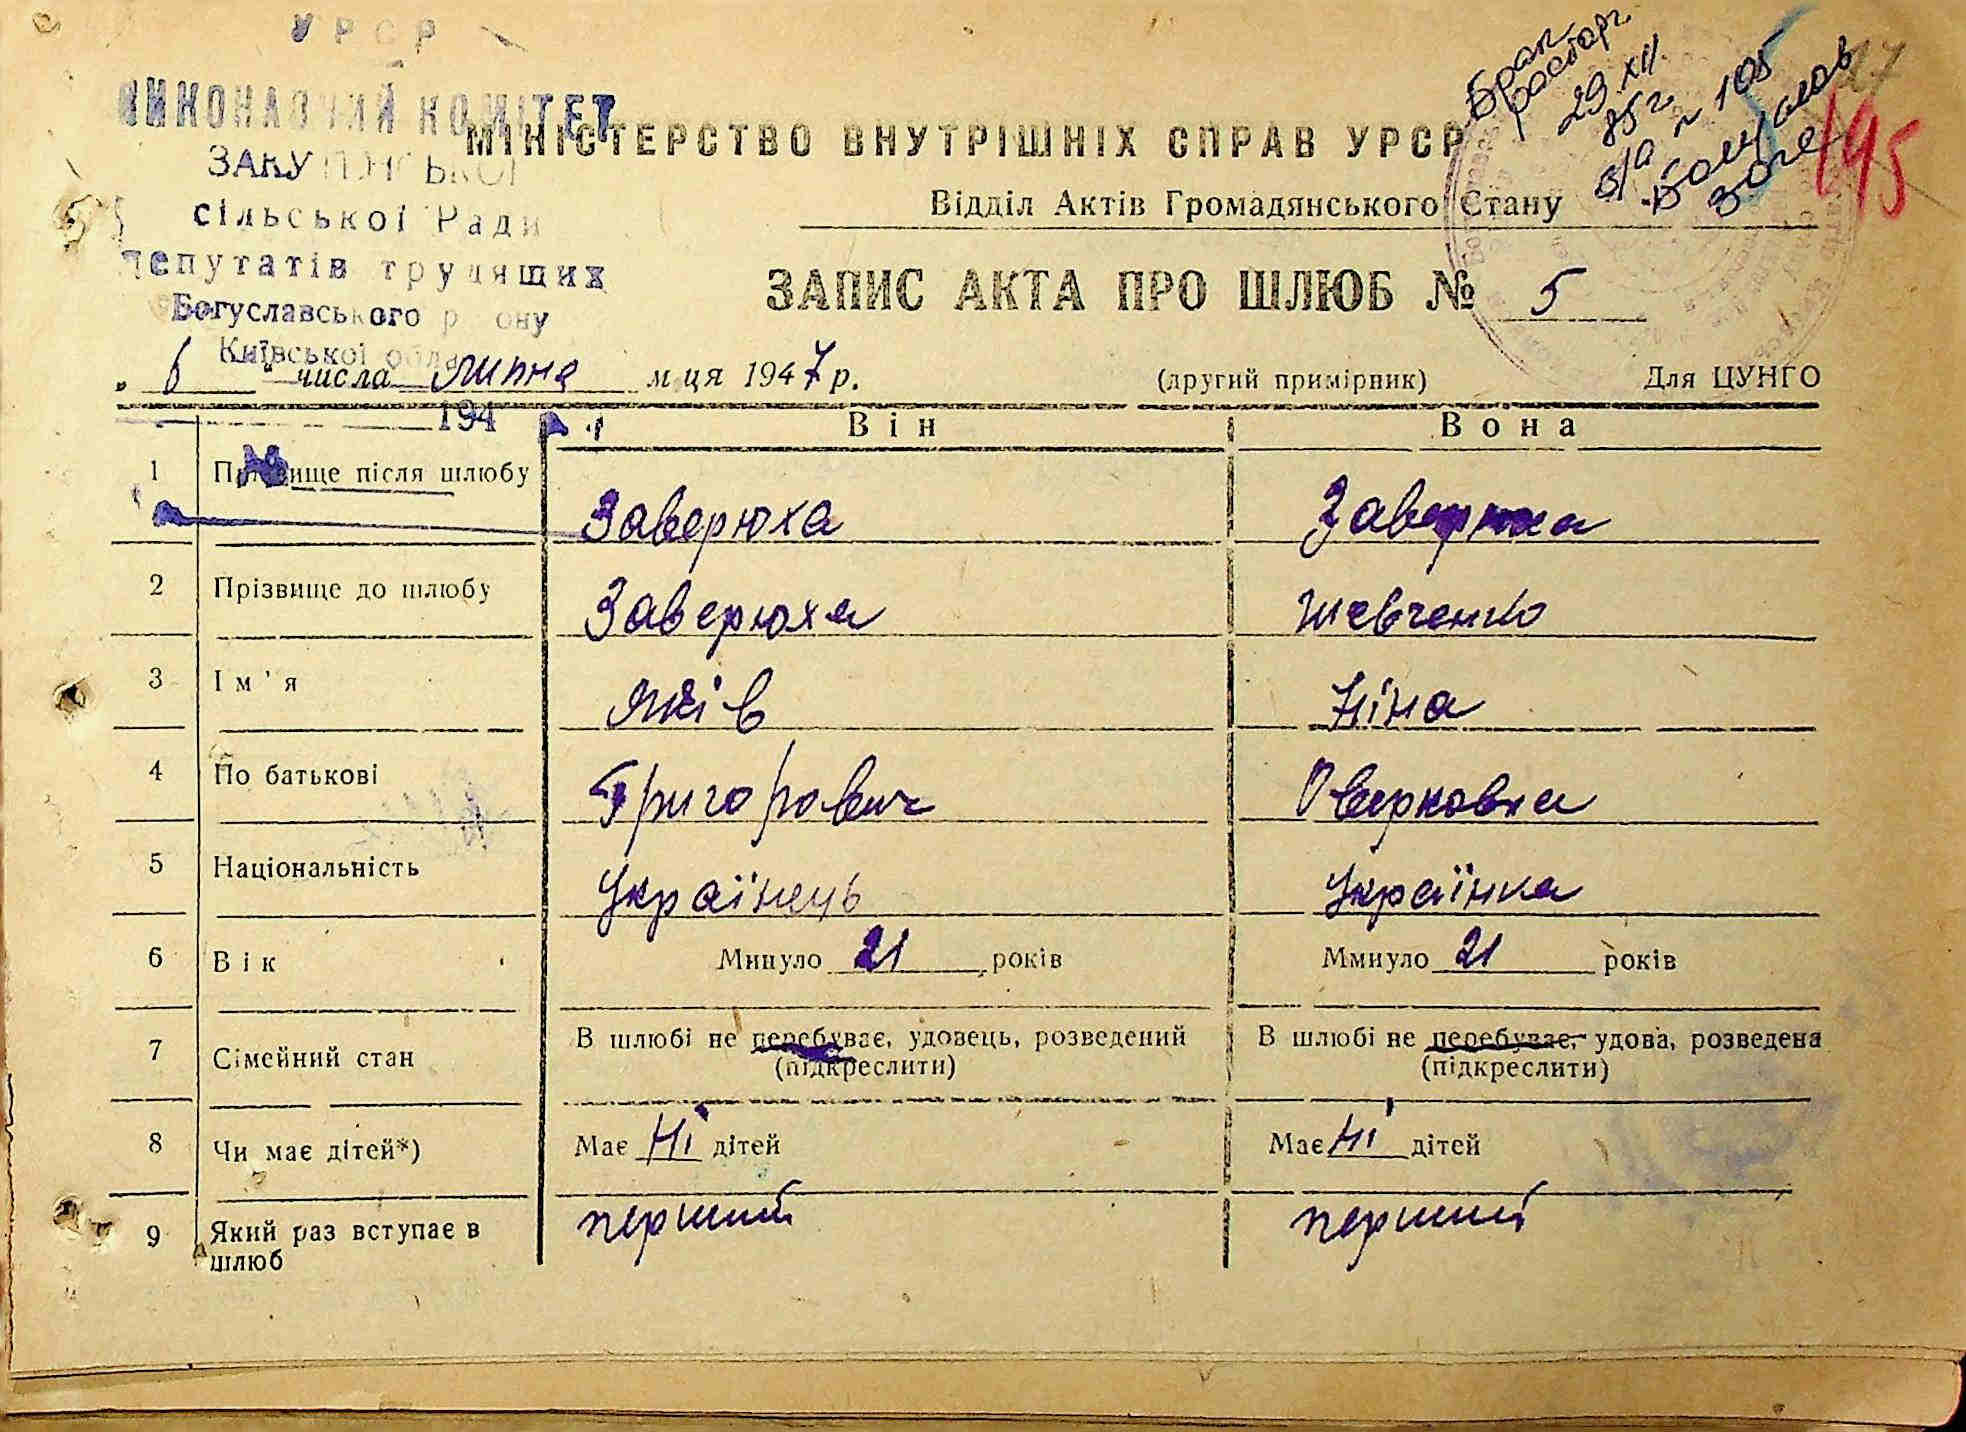 УРСР
ВИКОНАВЧИЙ КОМІТЕТ
ЗАКУТИНСЬКОЇ
сільської Ради
депутатів трудящих
Богуславського району
Київської обла
194
Брак
расторг.
29 XII
85 г.
а/з № 105
17
195
МІНІСТЕРСТВО ВНУТРІШНІХ СПРАВ УРСР
Відділ Актів Громадянського Стану
ЗАПИС АКТА ПРО ШЛЮБ № 5
„ 6 “ числа липня м ця 1947 р. (другий примірник) Для ЦУНГО
Він Вона
1 Прізвище після шлюбу Заверюха Заверюха
2 Прізвище до шлюбу Заверюха Шевченко
3 Ім'я Яків Ніна
4 По батькові Григорович Оверковна
5 Національність Українець Українка
6 Вік Минуло 21 років Ммнуло 21 років
7 Сімейний стан В шлюбі не перебуває, удовець, розведений (підкреслити) В шлюбі не перебуває, удова, розведена (підкреслити)
8 Чи має дітей*) Має Ні дітей Має Ні дітей
9 Який раз вступає в шлюб перший перший